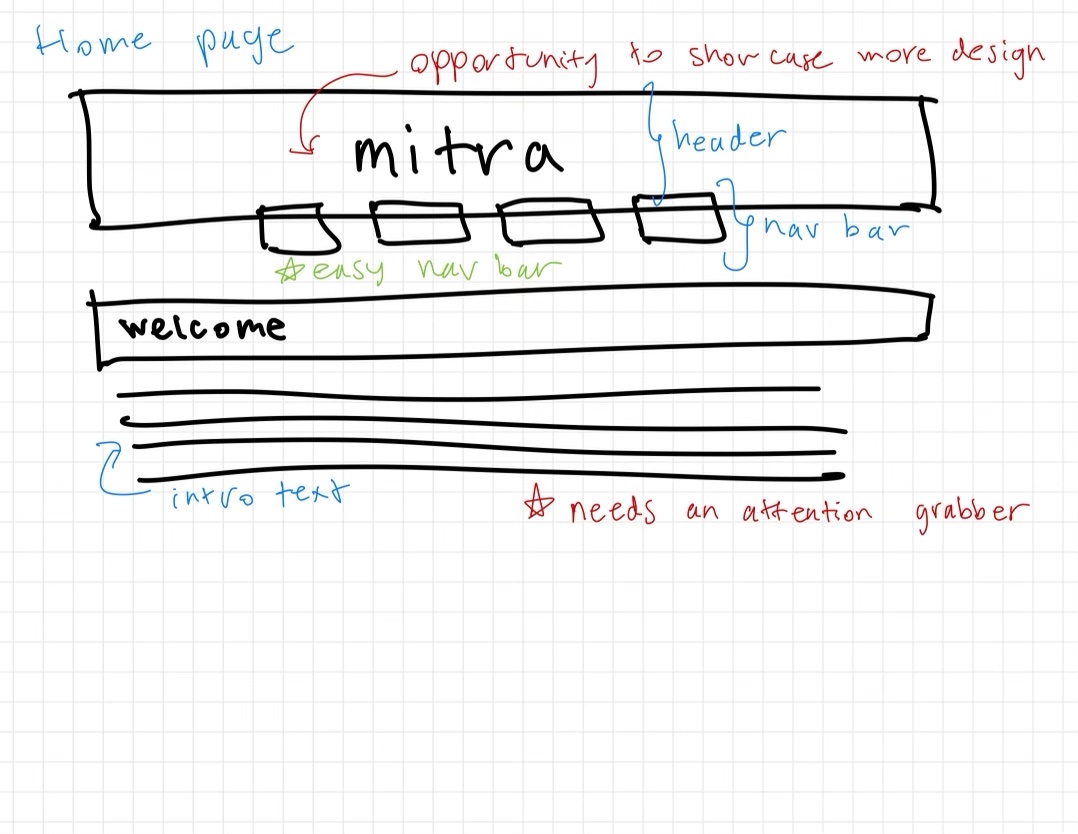 Home page
opportunity to showcase more design
mitra
header
nav bar
☆ easy nav bar
welcome
intro text
☆ needs an attention grabber